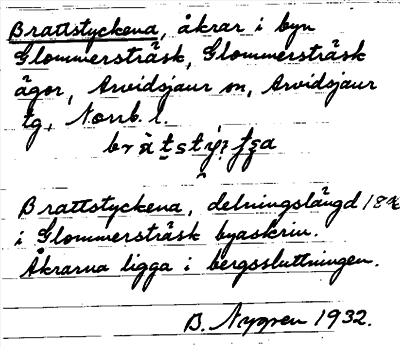 Brattstyckena, åkrar i byn
Glommersträsk, Glommersträsk
ägor, Arvidsjaur sn, Arvidsjaur
tg, Norrb. l.
Brattstyckena, delningslängd
i Glommersträsk byaskrin.
Åkrarna ligga i bergssluttningen.
B. Nygren 1932.